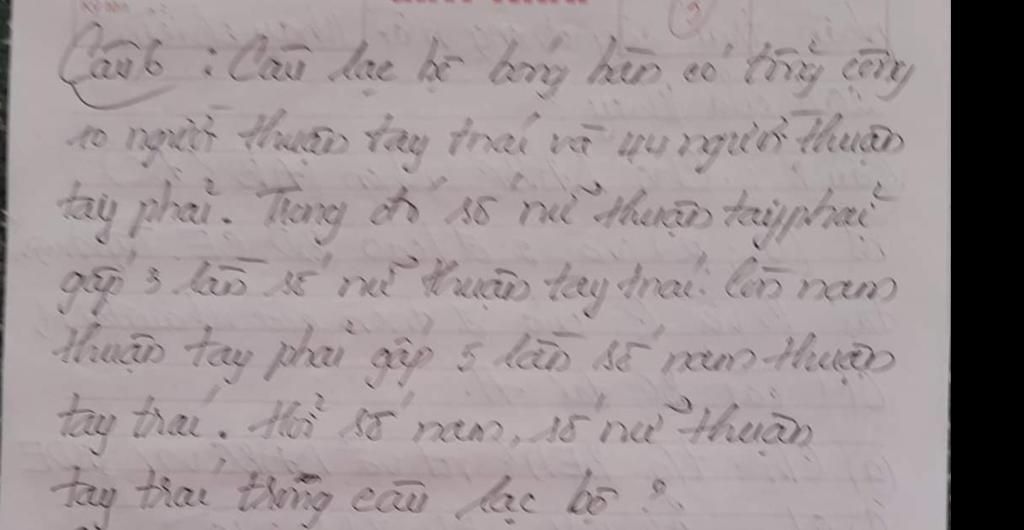 Câu 6 : Câu lạc bộ bóng bàn có tổng cộng
10 người thuận tay trái và 44 người thuận
tay phải. Trong đó số nữ thuận tay phải
gấp 3 lần số nữ thuận tay trái. Còn nam
thuận tay phải gấp 5 lần số nam thuận
tay trái. Hỏi số nam, số nữ thuận
tay trái trong câu lạc bộ ?